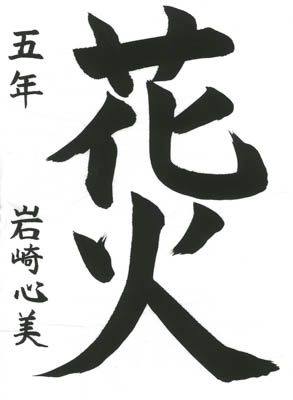 花火
五年 岩崎心美